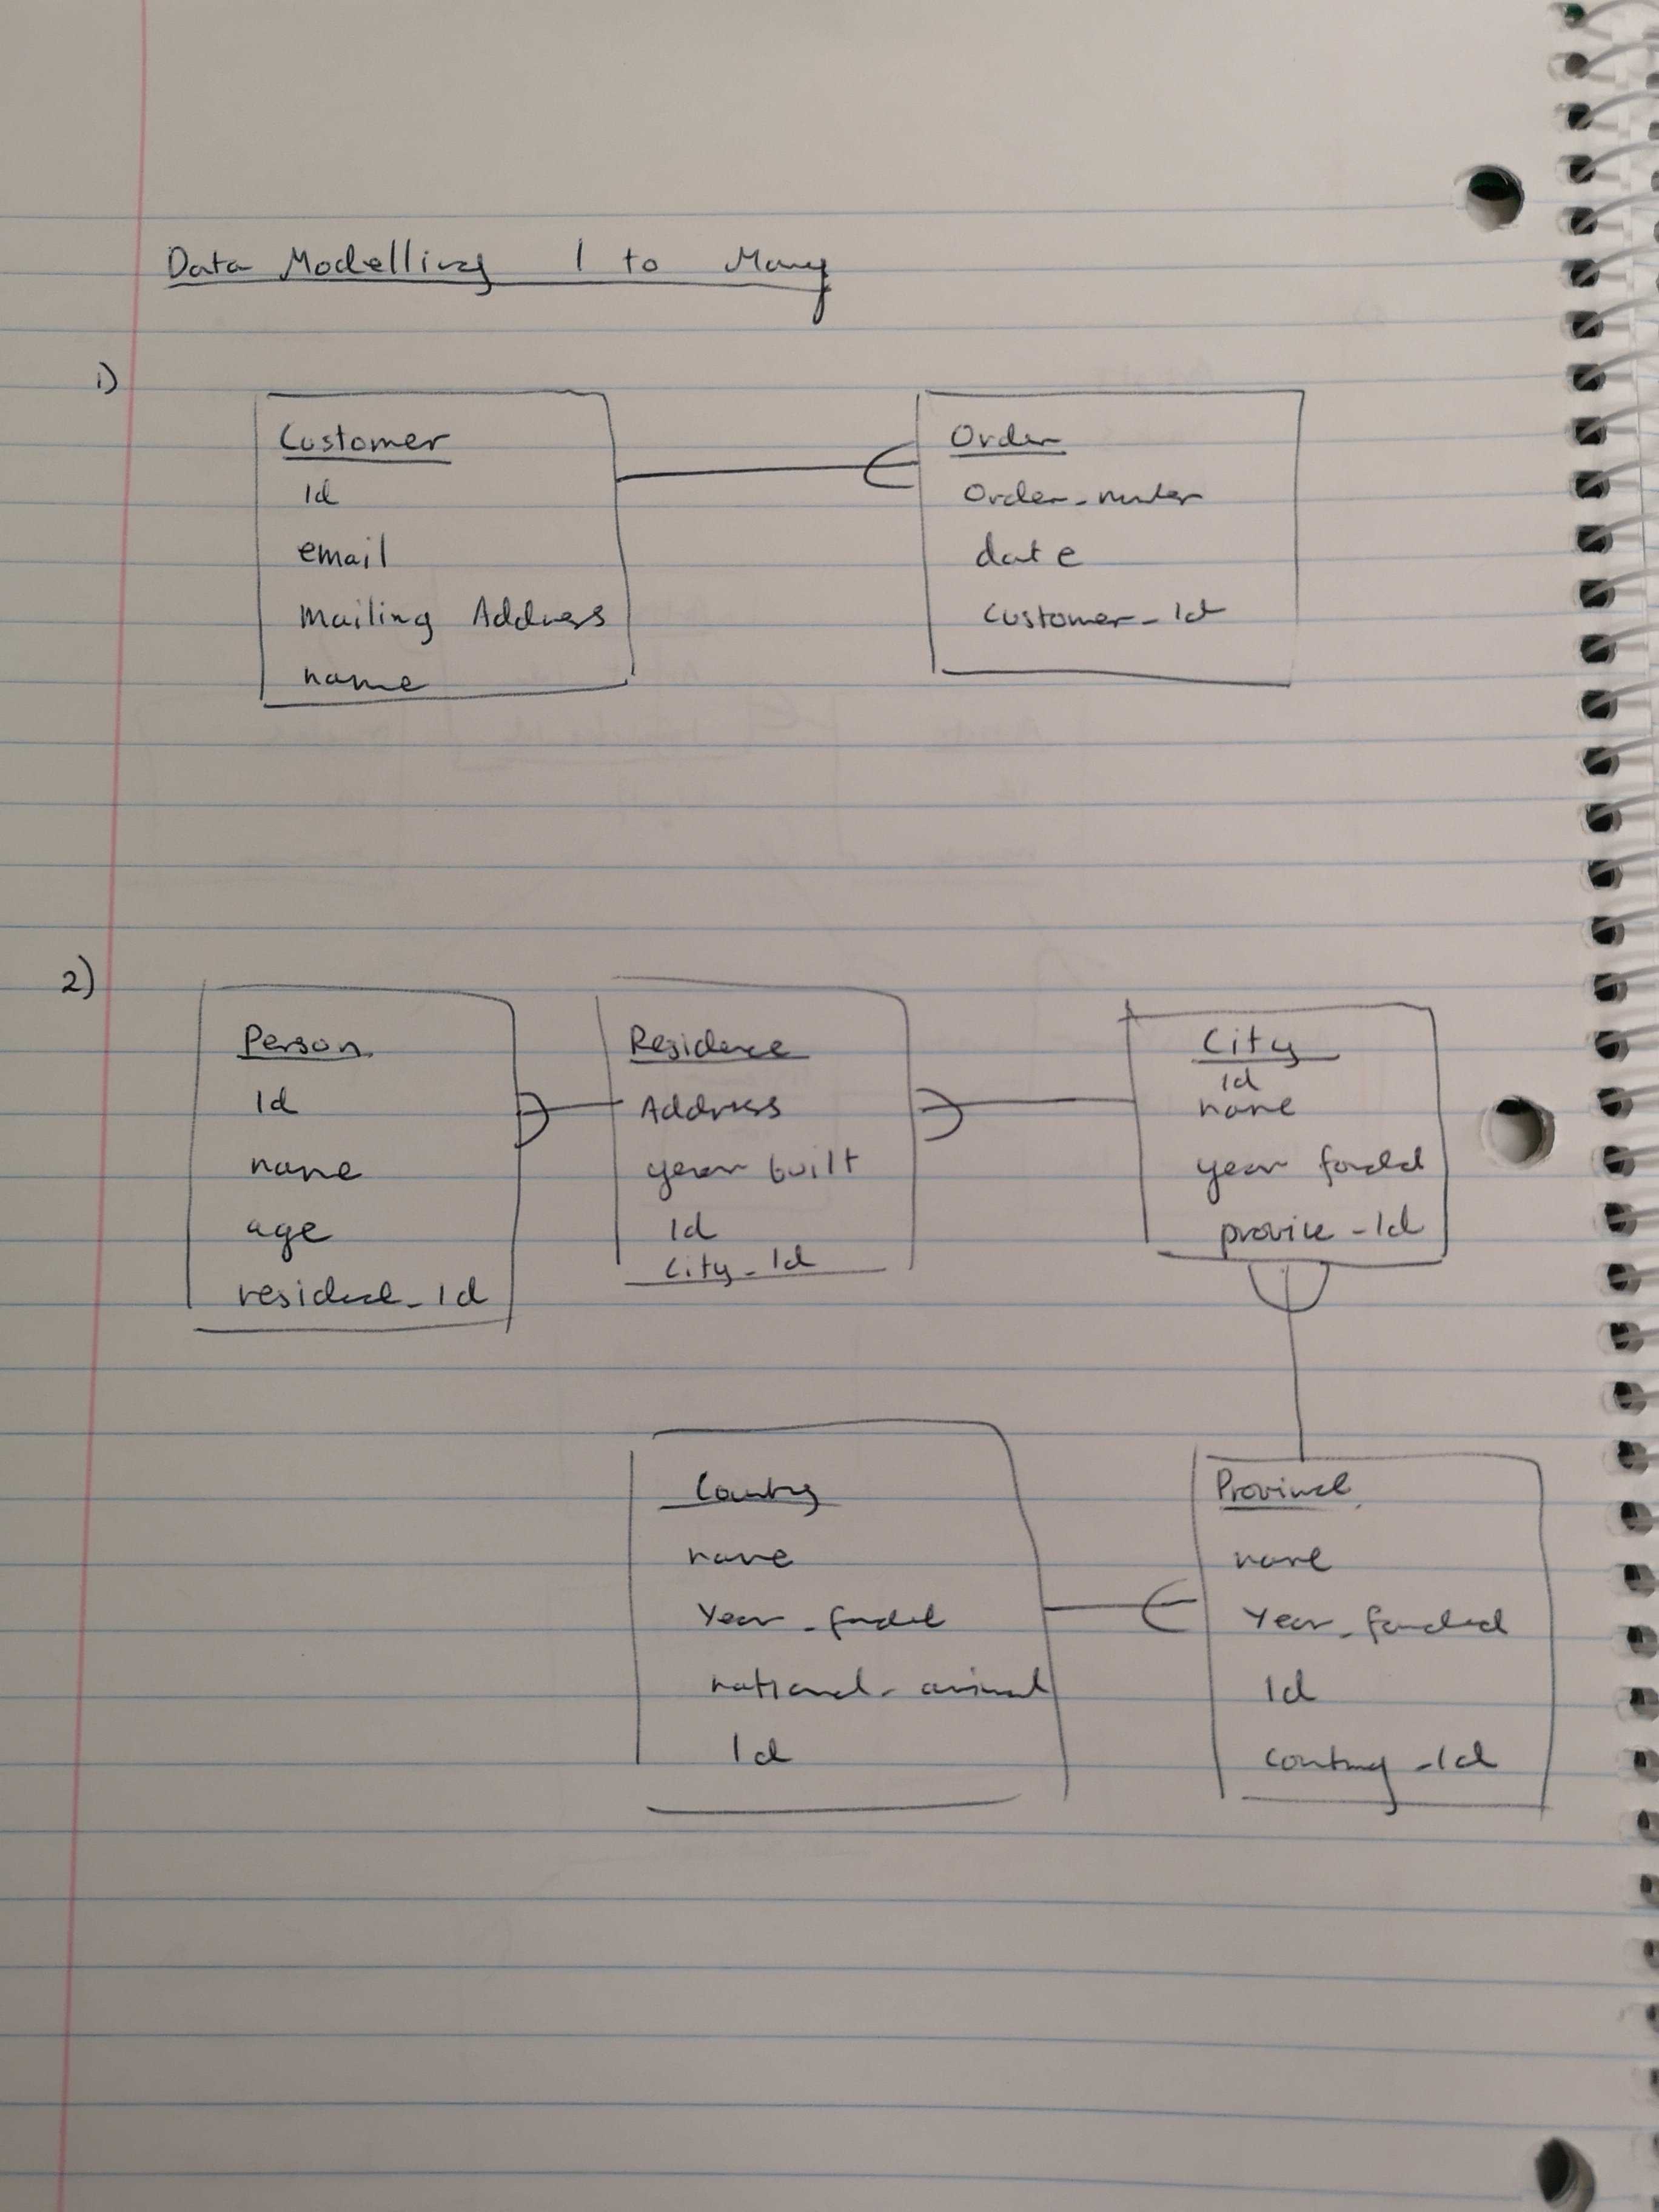 Data Modelling 1 to Many
1)
Customer
Id
email
Mailing Address
name
Order
Order_number
date
Customer_Id
2)
Person
Id
name
age
residence_Id
Residence
Address
year built
Id
City_Id
City
Id
name
year founded
province_Id
Country
name
Year_founded
national_animal
Id
Province
name
Year_founded
Id
Country_Id